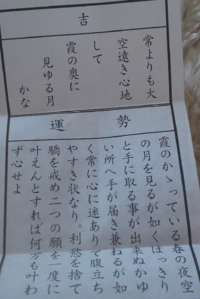 吉
常よりも大
空遠き心地
して
霞の奥に
見ゆる月
かな
運勢
霞のかゝっている春の夜空
の月を見るが如くはっきり
と手に取る事が出来ぬかゆ
い所へ手が届き兼ねるが如
く常に心に迷ありて腹立ち
やすき状なり。利慾を捨て
驕を戒め二つの願を一度に
叶えんとすれば何方も叶わ
ず心せよ